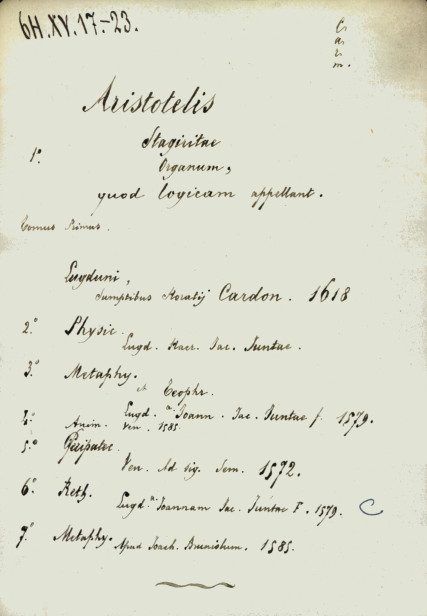 6H.XV.17.-23.
C
a
r
m.
Aristotelis
Stagiritae
1º.
Organum,
quod logicam appellant.
Tomus Primus.
Lugduni,
Sumptibus Horatij Cardon. 1618
2º Physic.
Lugd. Haer. Jac. Juntae.
3.º Metaphy.
et Teophr.
Lugd. Joann. Jac. Juntae f. 1579.
4.º Anim. Ven. 1585.
5.º
Ven. Ad sig. Sem. 1572.
6º. Reth.
Lugd. Joannam Jac. Juntae F. 1579. C
7º Metaphy. Apud Joach. 1585.